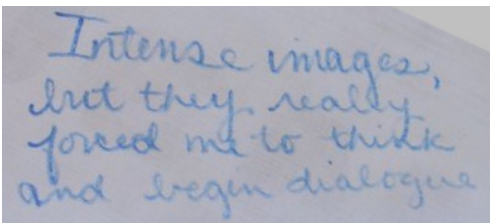 Intense images,
but they really
forced me to think
and begin dialogue